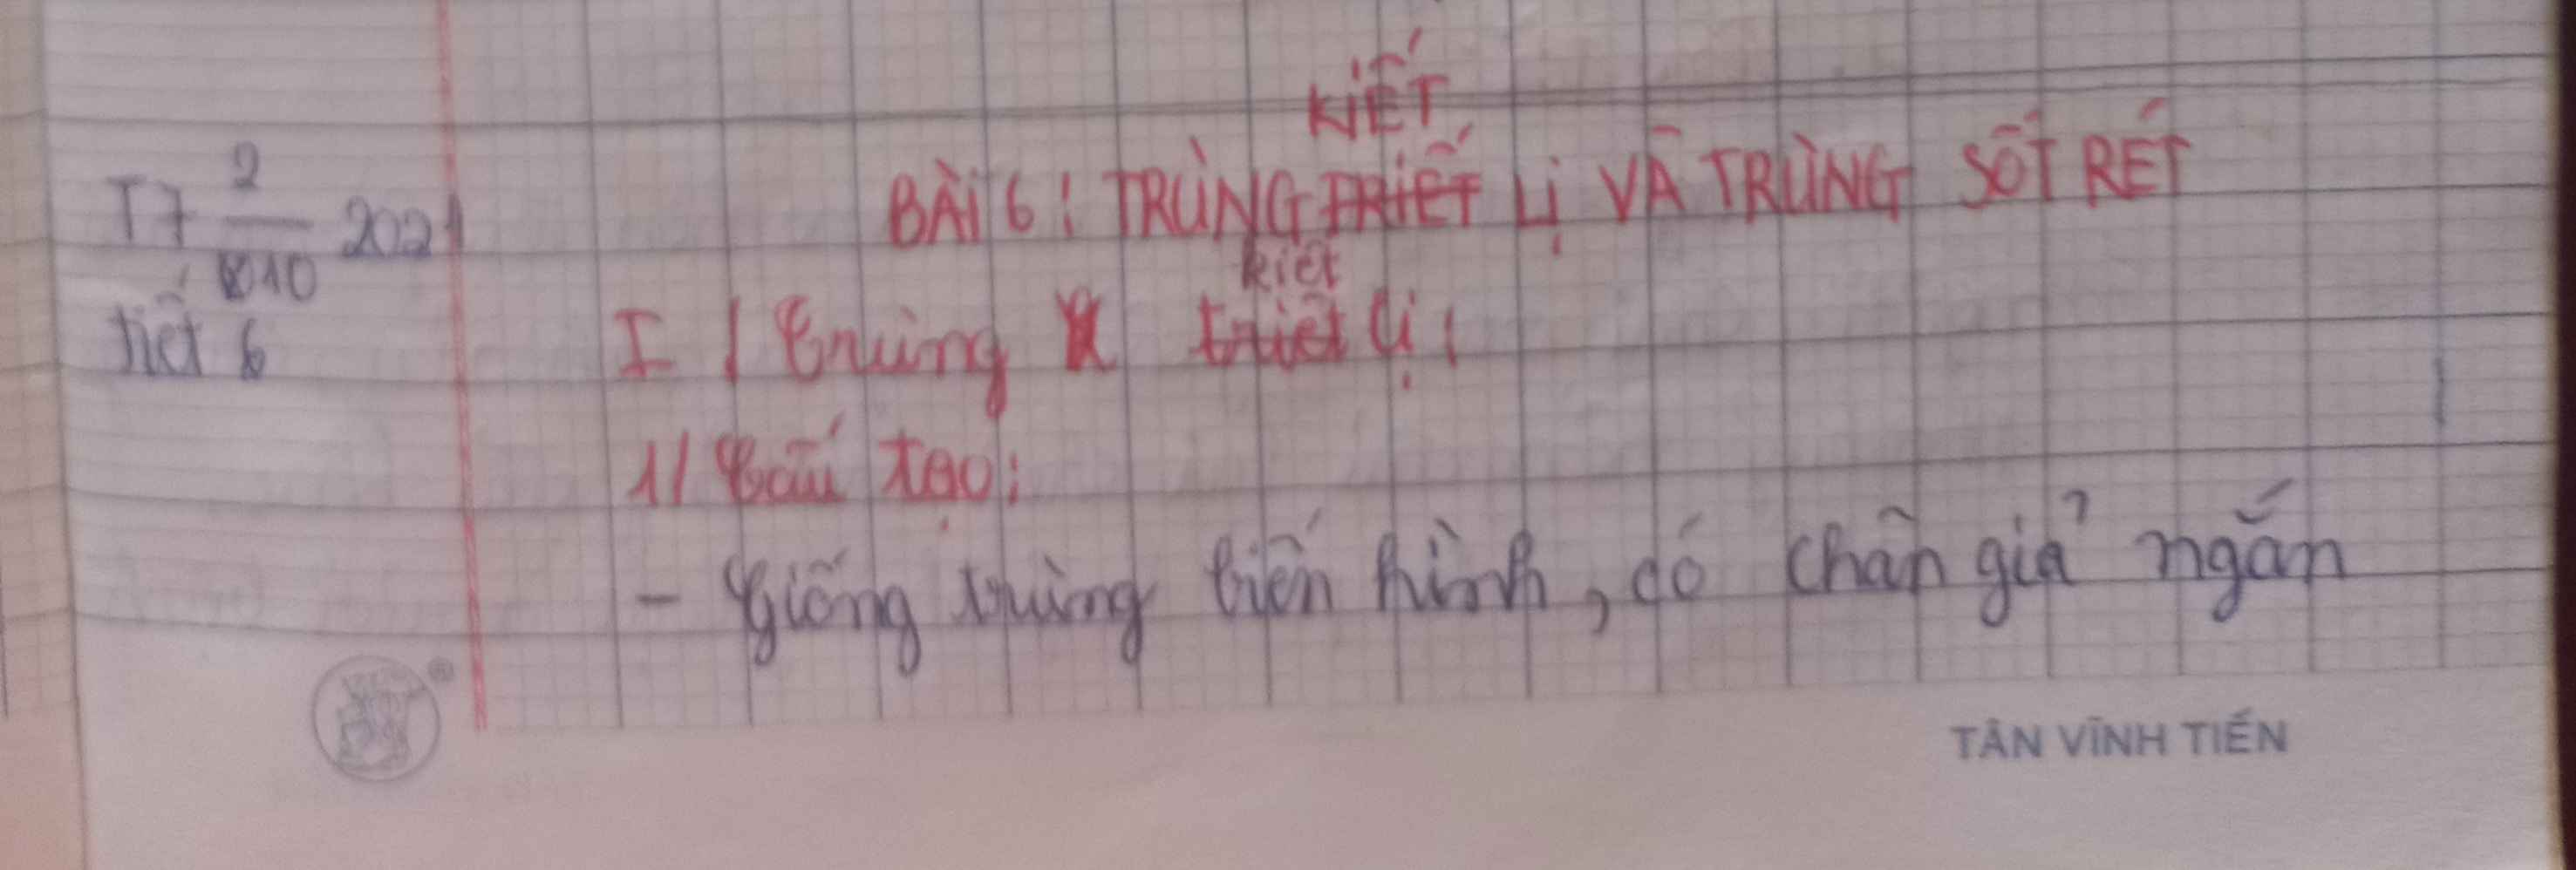 T7 2/10 2021
tiết 6
KIẾT
BÀI 6: TRÙNG TRIẾT LỊ VÀ TRÙNG SỐT RÉT
kiết
I / Trùng triết lị:
1/ Cấu tạo:
- Giống trùng biến hình, có chân giả ngắn
TÂN VĨNH TIẾN